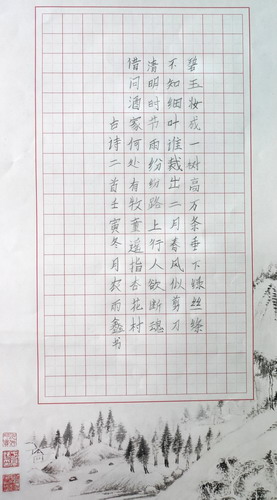 碧玉妆成一树高万条垂下绿丝绦
不知细叶谁裁出二月春风似剪刀
清明时节雨纷纷路上行人欲断魂
借问酒家何处有牧童遥指杏花村
古诗二首壬寅冬月雨鑫书